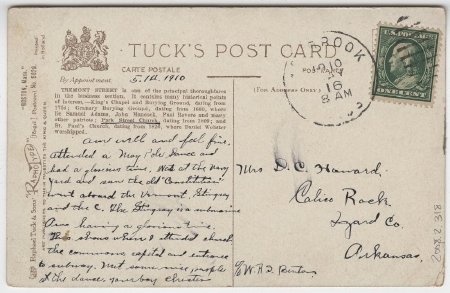 TUCK'S POST CARD
CARTE POSTALE
By Appointment
5.1st. 1910
(FOR ADDRESS ONLY)
TREMONT STREET is one of the principal thoroughfares
in the business section. It contains many historical points
of interest,—King's Chapel and Burying Ground, dating from
1756; Granary Burying Ground, dating from 1660, where
lie Samuel Adams, John Hancock, Paul Revere and many
other patriots; Park Street Church, dating from 1809; and
St. Paul's Church, dating from 1820, where Daniel Webster
worshipped.
"BOSTON, Mass."
Raphael Tuck & Sons'
BROOK
10
16
8 AM
U.S. POSTAGE
ONE CENT
am well and feel fine,
attended a May Pole Dance and
had a glorious time. Was at the Navy
Yard and saw the old Constitution
went aboard the Vermont, Stingray
and the C. The Stingray is a submarine
Am having a glorious time.
This shows where I attended church
the commons, capitol and entrance
to subway. Met some nice people
at the dance, your boy Christen
Mrs D. C. Haward.
Calico Rock
Izard Co.
Arkansas.
C/o W.A.J.
2002.2.318